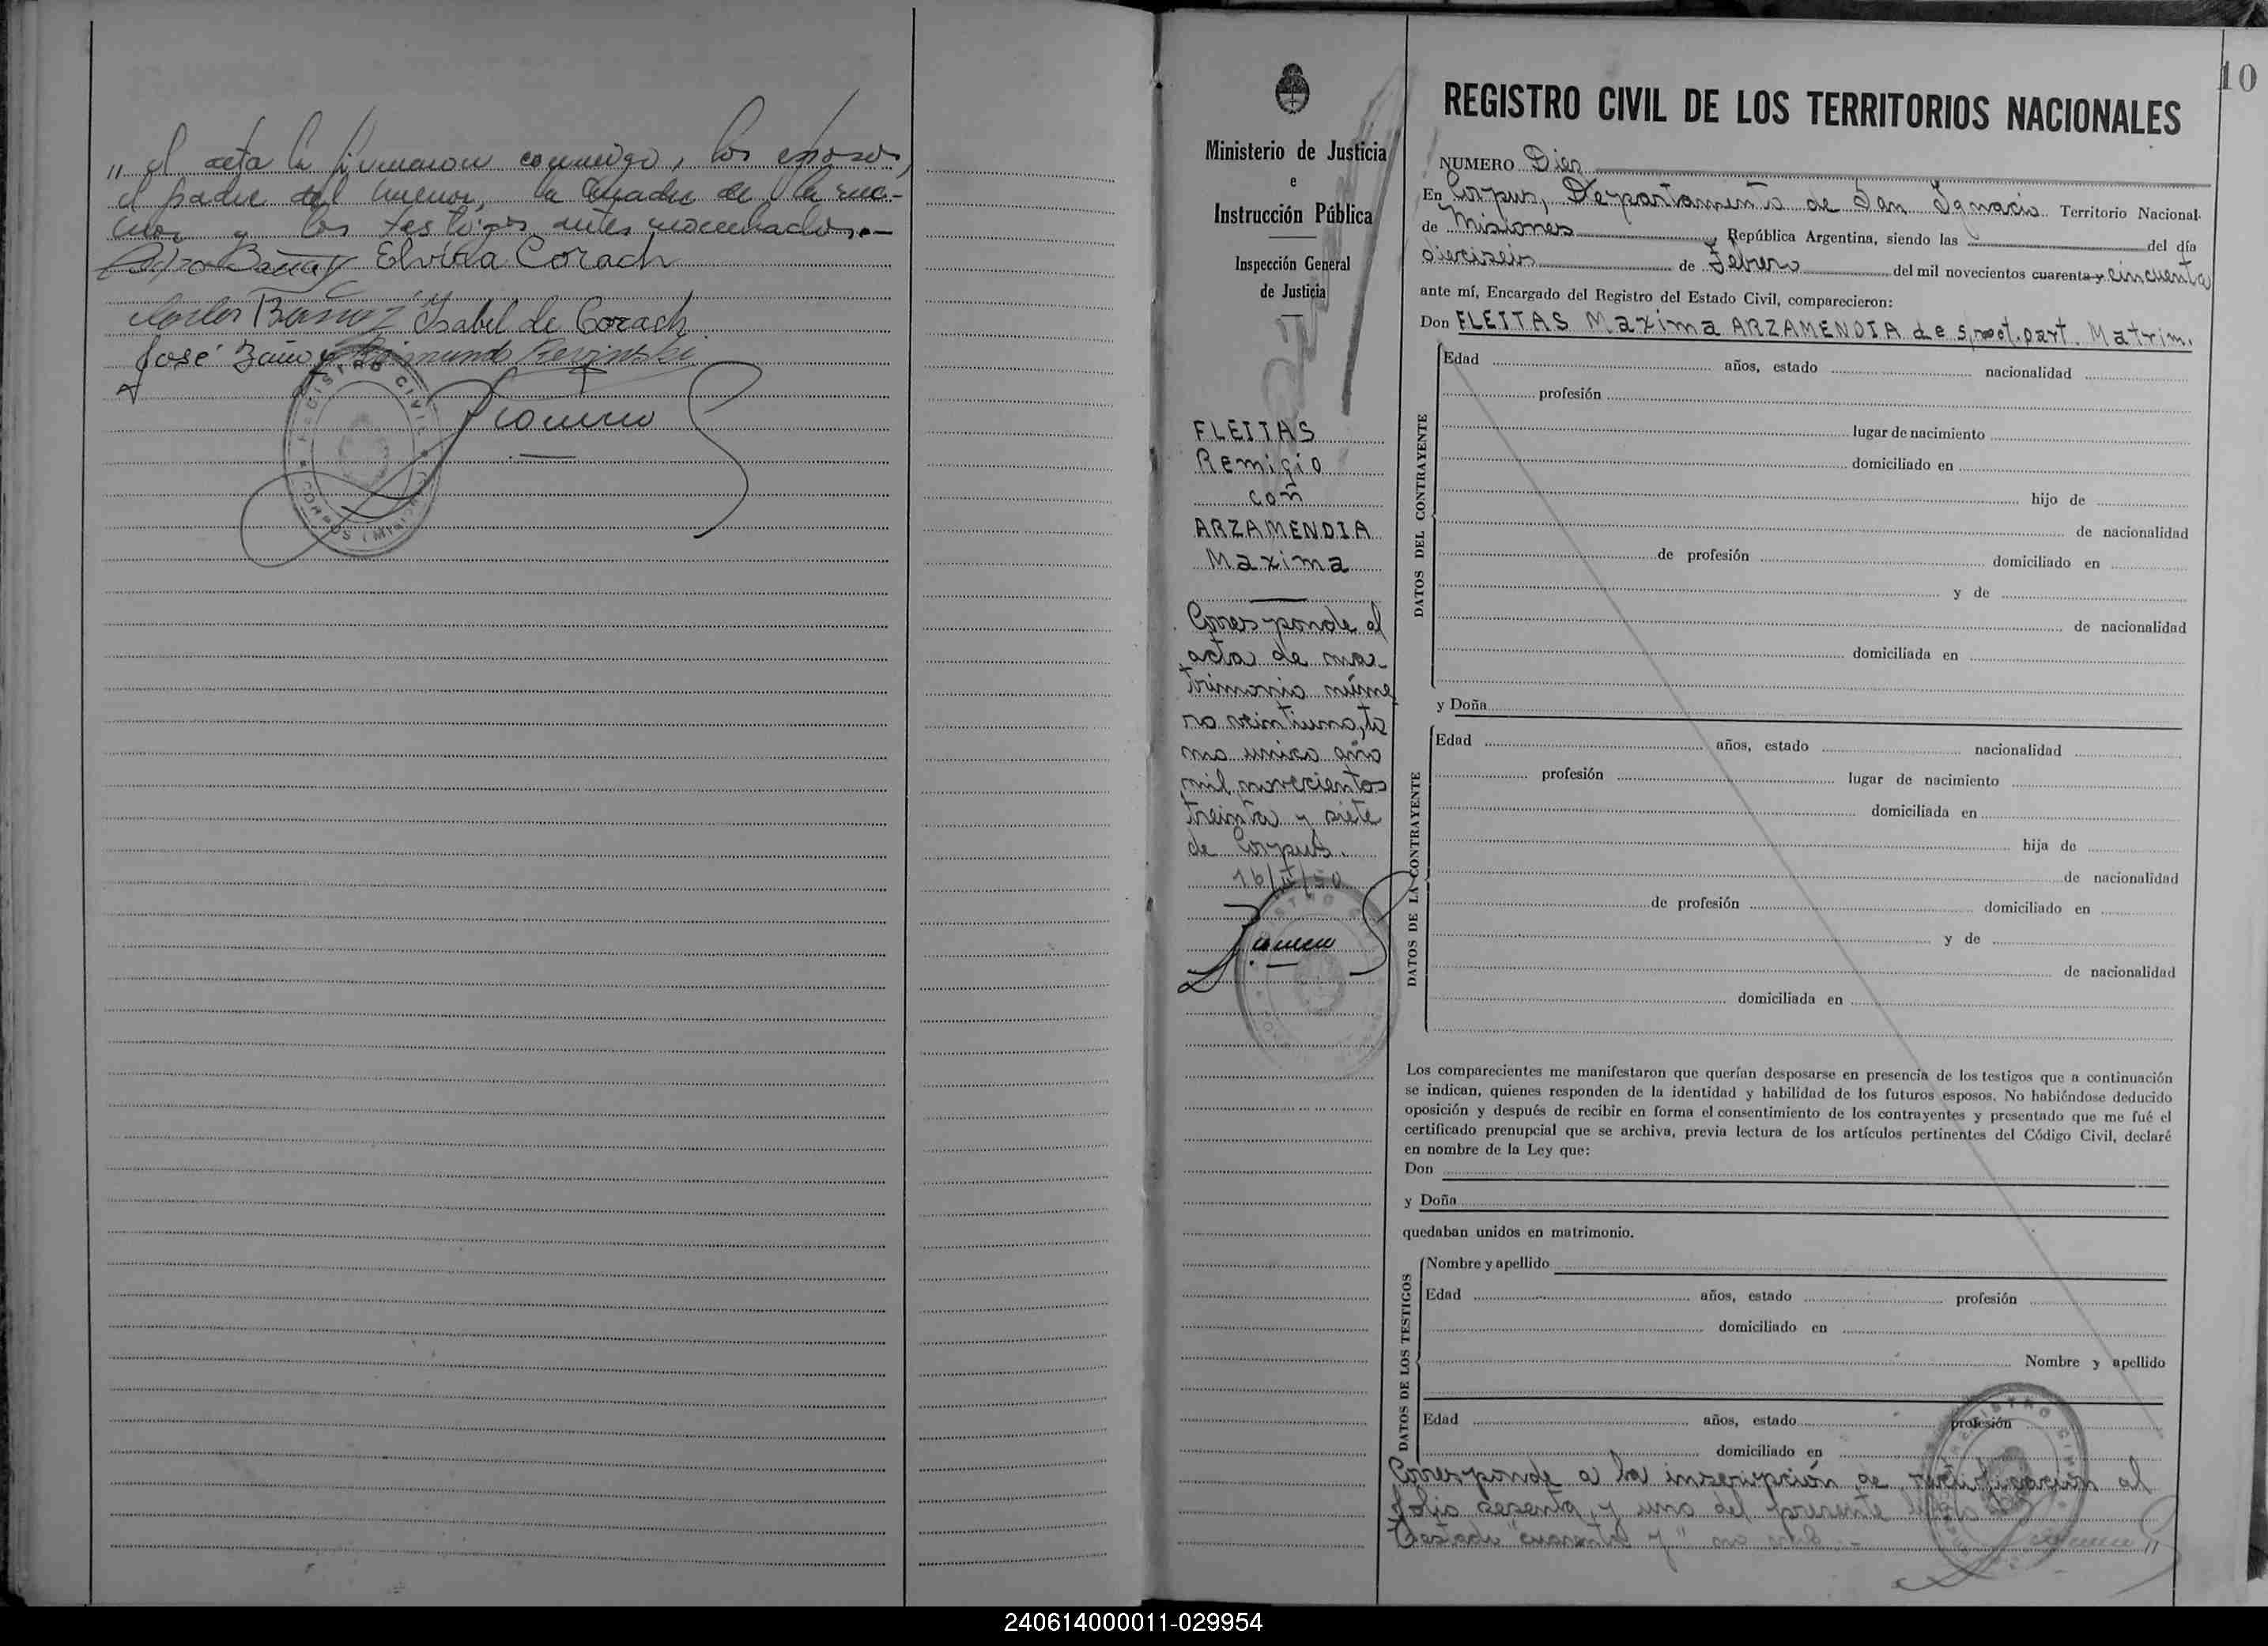 „ el acta la firmaron conmigo, los esposos,
el padre del menor, la madre de la me-
nor y los testigos antes nombrados.—
Elvira Corach
Carlos Isabel de Corach
José Raimundo
10
REGISTRO CIVIL DE LOS TERRITORIOS NACIONALES
Ministerio de Justicia
e
Instrucción Pública
Inspección General
de Justicia
FLEITAS
Remigio
con
ARZAMENDIA
Maxima
Corresponde al
acta de ma-
trimonio núme
ro veintiuno, to
mo unico año
mil novecientos
treinta y siete
de Corpus.
16/II/50
NUMERO Diez
En Corpus, Departamento de San Ignacio Territorio Nacional
de Misiones, República Argentina, siendo las del día
dieciseis de Febrero del mil novecientos cuarenta y cincuenta
ante mí, Encargado del Registro del Estado Civil, comparecieron:
Don FLEITAS Maxima ARZAMENDIA de s, rect. part. Matrim.
DATOS DEL CONTRAYENTE
Edad años, estado nacionalidad
profesión
lugar de nacimiento
domiciliado en
hijo de
de nacionalidad
de profesión domiciliado en
y de
de nacionalidad
domiciliada en
y Doña
DATOS DE LA CONTRAYENTE
Edad años, estado nacionalidad
profesión lugar de nacimiento
domiciliada en
hija de
de nacionalidad
de profesión domiciliado en
y de
de nacionalidad
domiciliada en
Los comparecientes me manifestaron que querían desposarse en presencia de los testigos que a continuación
se indican, quienes responden de la identidad y habilidad de los futuros esposos. No habiéndose deducido
oposición y después de recibir en forma el consentimiento de los contrayentes y presentado que me fué el
certificado prenupcial que se archiva, previa lectura de los artículos pertinentes del Código Civil, declaré
en nombre de la Ley que:
Don
y Doña
quedaban unidos en matrimonio.
DATOS DE LOS TESTIGOS
Nombre y apellido
Edad años, estado profesión
domiciliado en
Nombre y apellido
Edad años, estado profesión
domiciliado en
Corresponde a la inscripción de rectificación al
folio sesenta y uno del presente
Testado "cuarenta y" no vale.-
240614000011-029954